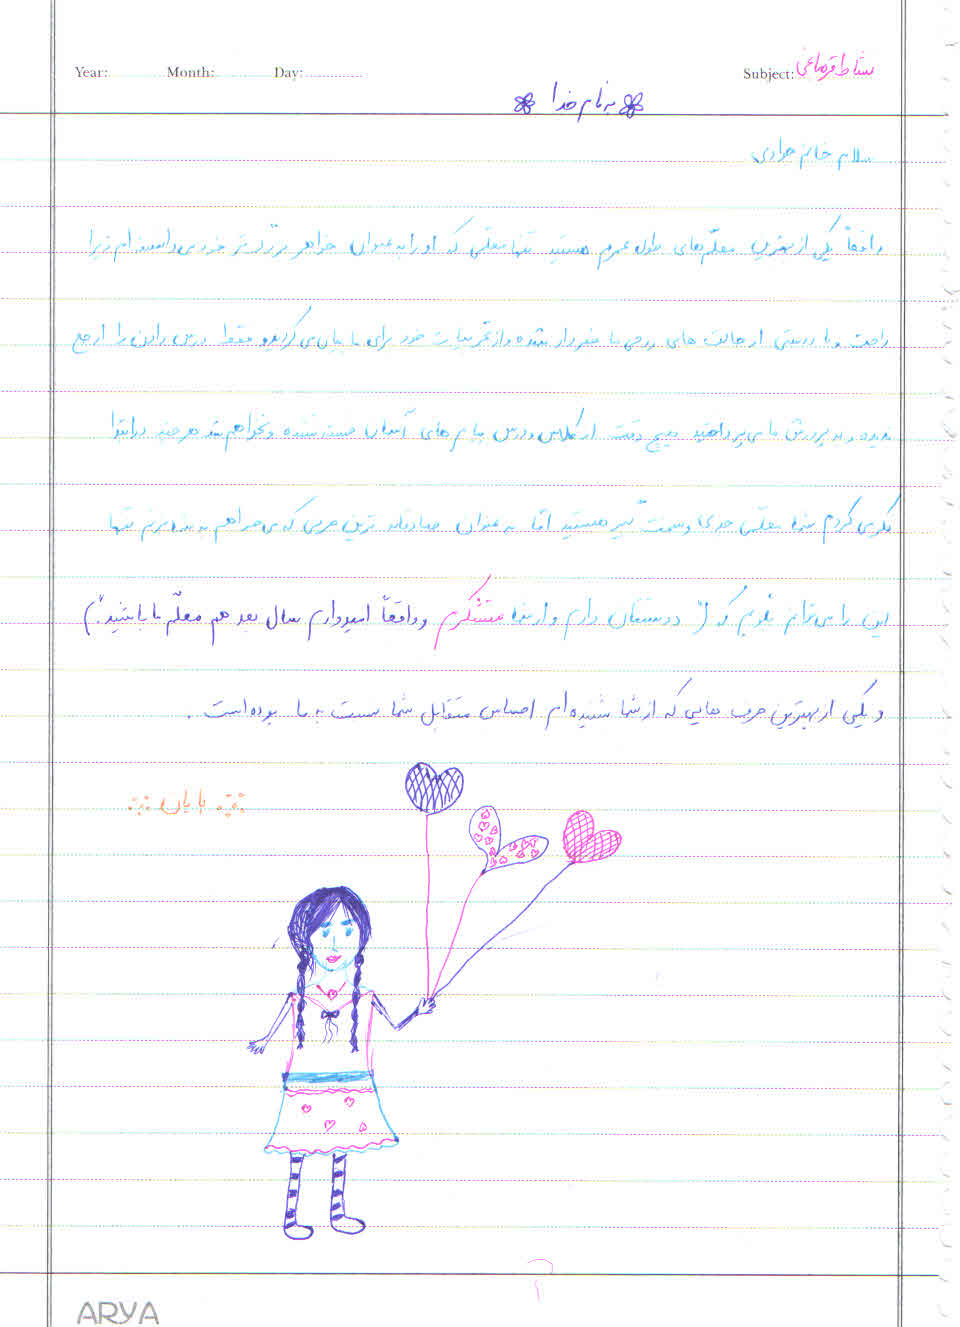 Year: Month: Day: Subject: نشاط قره باغی
به نام خدا
سلام خانم مرادی
واقعاً یکی از بهترین معلّم‌های طول عمرم هستید تنها معلّمی که او را به عنوان خواهر بزرگ‌تر خود می‌دانسته‌ام زیرا
راحت و با درستی از حالت های روحی ما خبردار شده و از تجربیات خود برای ما بیان می‌کردید و فقط درس دادن را ارجع
ندیده و به پرورش ما می‌پرداختید هیچ وقت از کلاس درس پیام های آسمان خسته نشده و نخواهم شد هر چند در ابتدا
فکر می کردم شما معلّمی جدی و سخت گیر هستید امّا به عنوان صادقانه ترین حرفی که می‌خواهم به شما بزنم تنها
این را می‌توانم بگویم که (" دوستتان دارم و از شما متشکرم و واقعاً امیدوارم سال بعد هم معلّم ما باشید.")
و یکی از بهترین حرف هایی که از شما شنیده ام احساس متقابل شما نسبت به ما بوده است .
پایان
ARYA